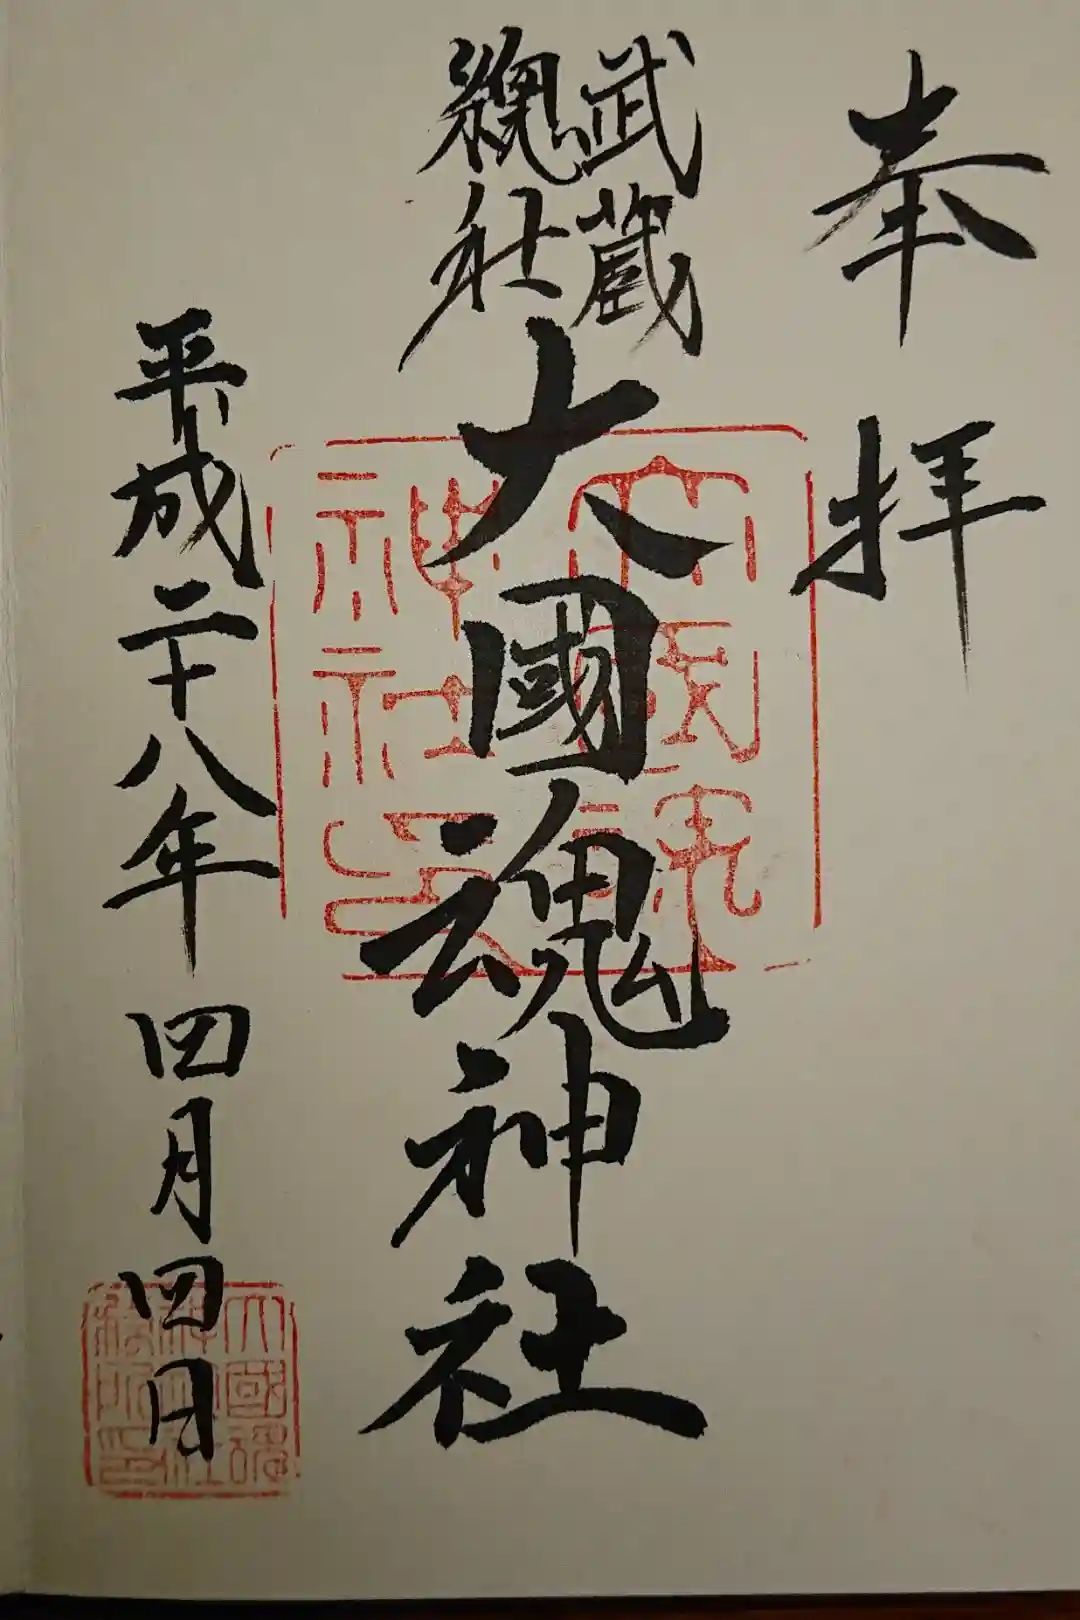 奉拝
武蔵
總社
大國魂神社
平成二十八年四月四日
大國魂
神社印
大國魂
神社
務所印